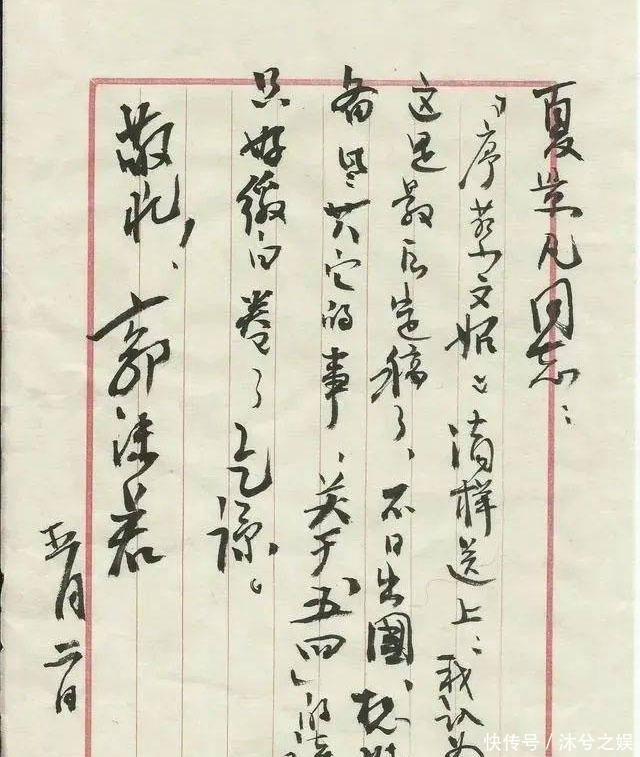 夏景凡同志：
「序蔡文姬」清样送上；我认为
这是最后定稿了、不日出国、
备些其它的事、关于「五四」的
只好缴白卷了乞谅。
敬礼！
郭沫若
五月二日
快传号／沐兮之娱